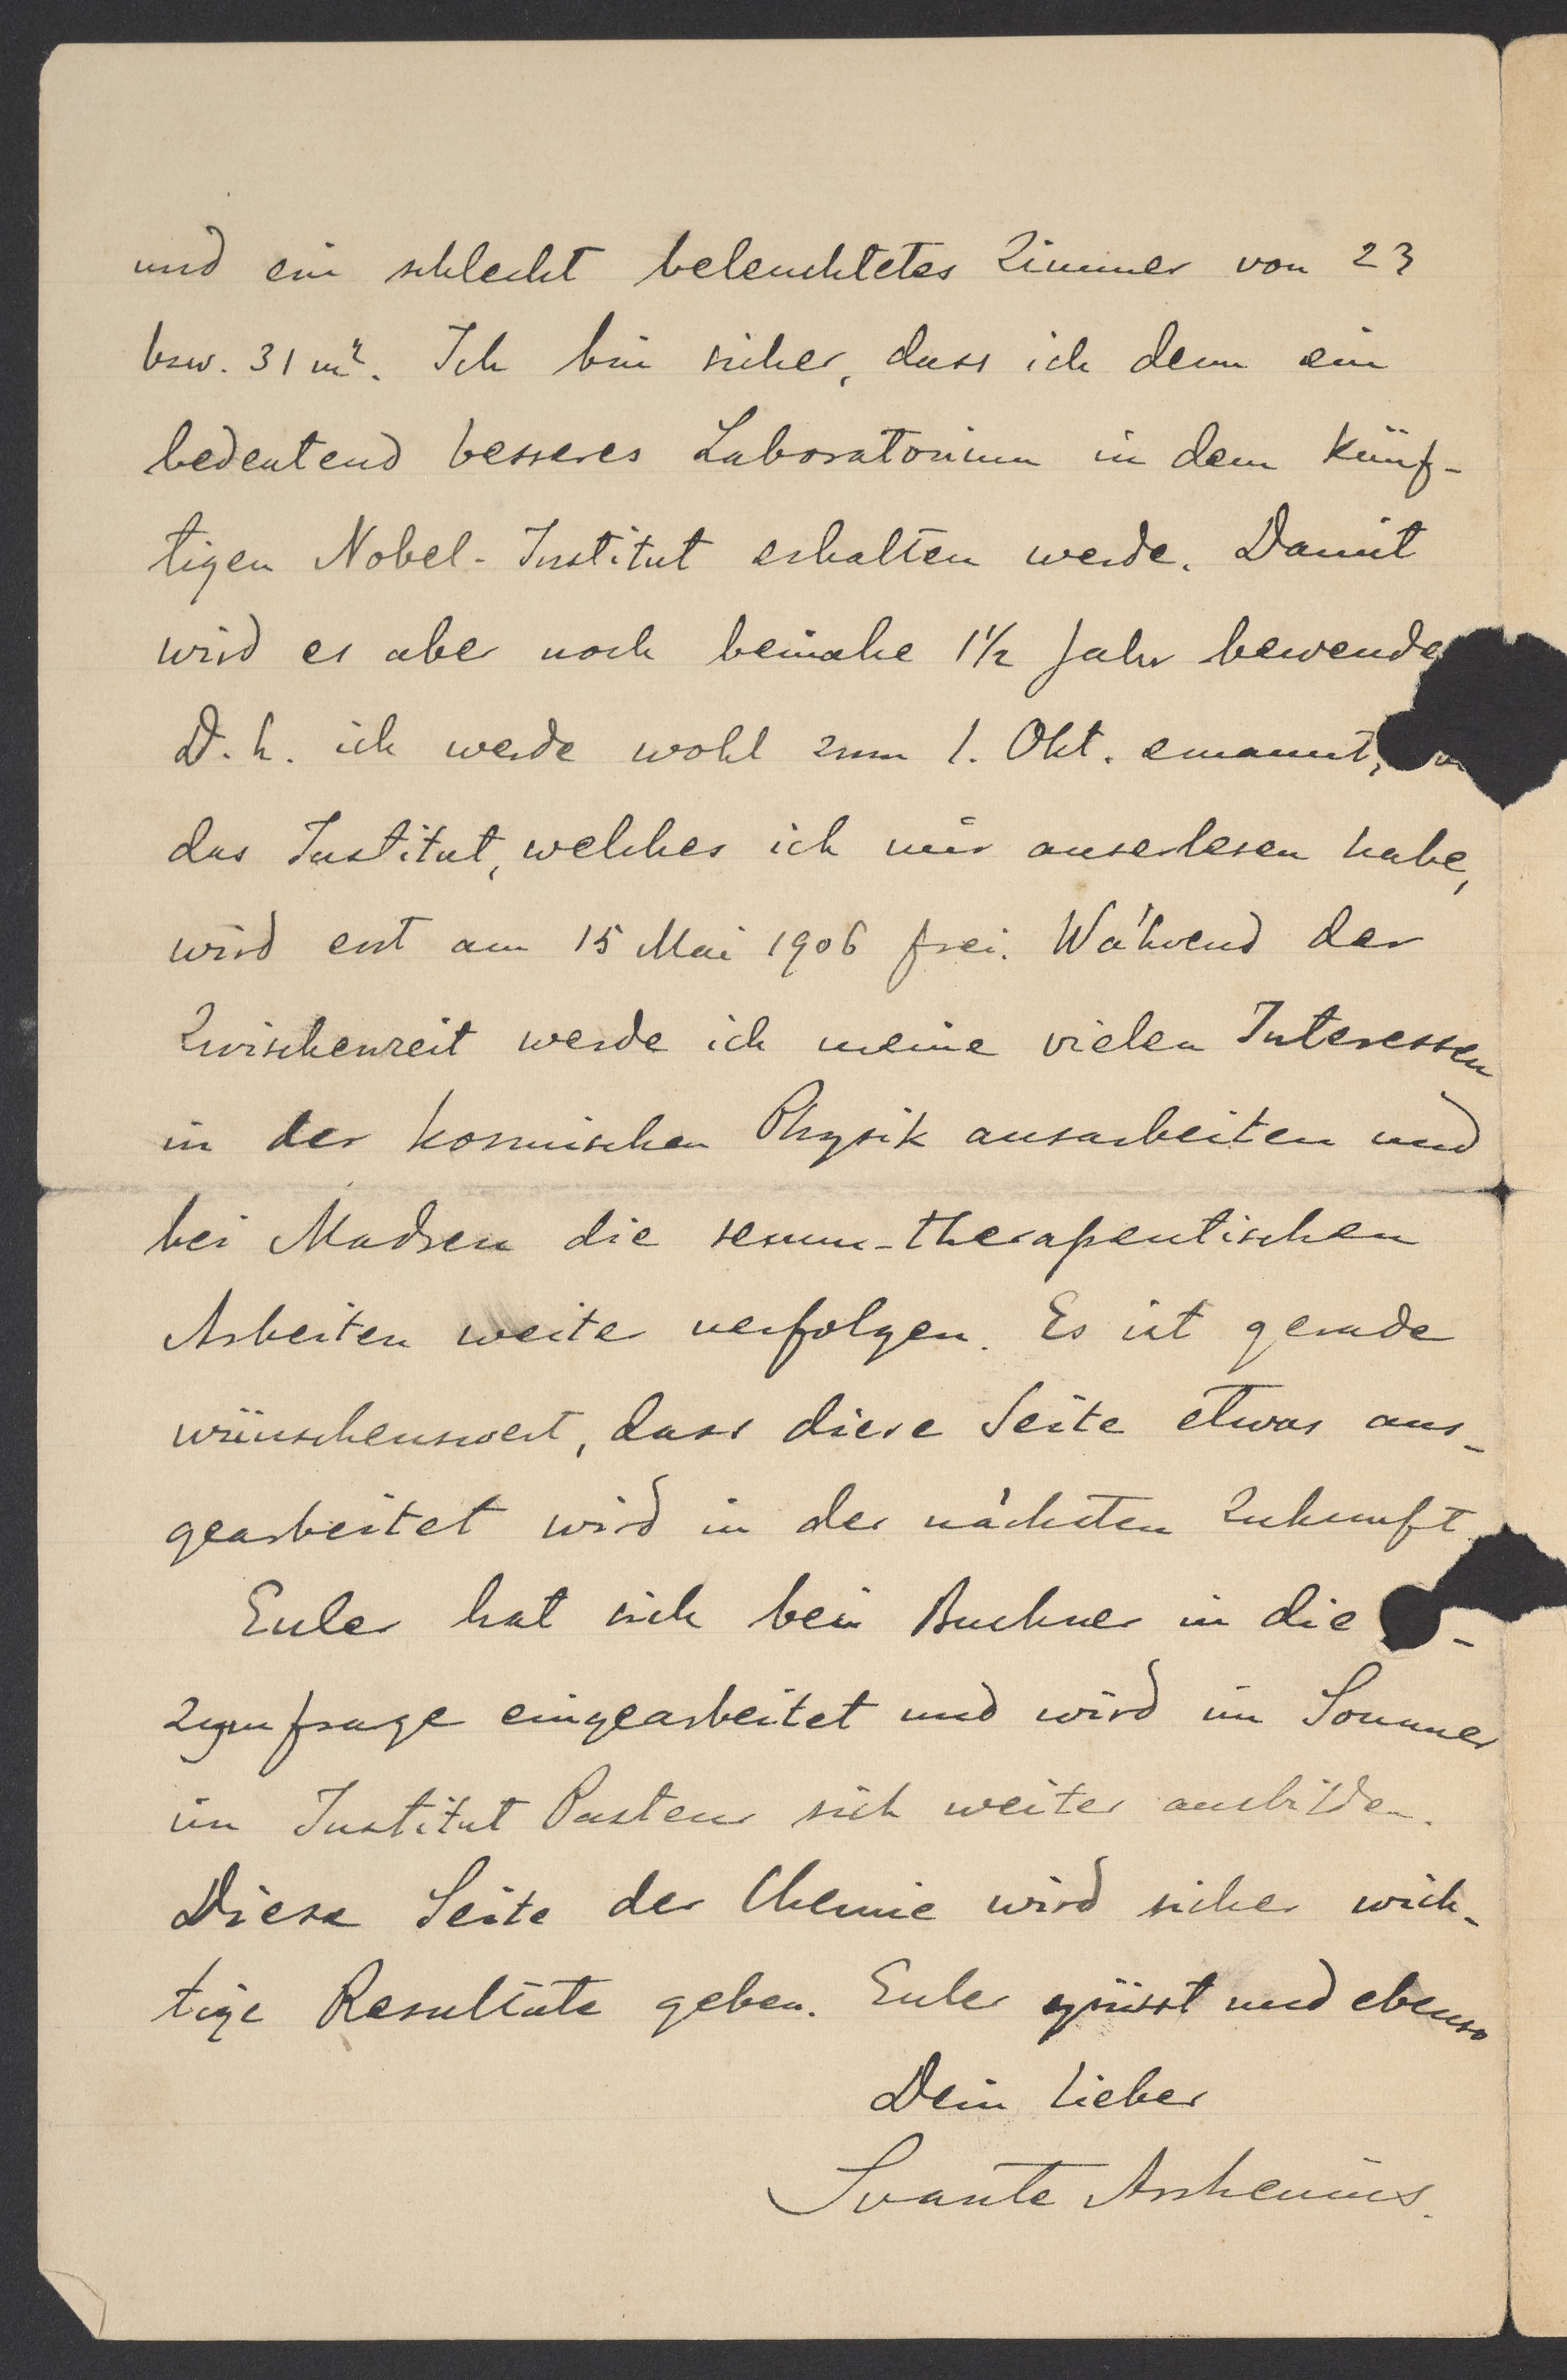 und ein schlecht beleuchtetes Zimmer von 23
bzw. 31 m². Ich bin sicher, dass ich denn ein
bedeutend besseres Laboratorium in dem künf-
tigen Nobel-Institut erhalten werde. Damit
wird es aber noch beinahe 1½ Jahr bewende
D. h. ich werde wohl zum 1. Okt. ernannt,
das Institut, welches ich mir auserlesen habe,
wird erst am 15 Mai 1906 frei. Während der
Zwischenzeit werde ich meine vielen Interessen
in der kosmischen Physik ausarbeiten und
bei Madsen die serum-therapeutischen
Arbeiten weiter verfolgen. Es ist gerade
wünschenswert, dass diese Seite etwas aus-
gearbeitet wird in der nächsten Zukunft.
Euler hat sich bei Buchner in die -
zymfrage eingearbeitet und wird im Sommer
im Institut Pasteur sich weiter ausbilden.
Diese Seite der Chemie wird sicher wich-
tige Resultate geben. Euler grüsst und ebenso
Dein lieber
Svante Arrhenius.